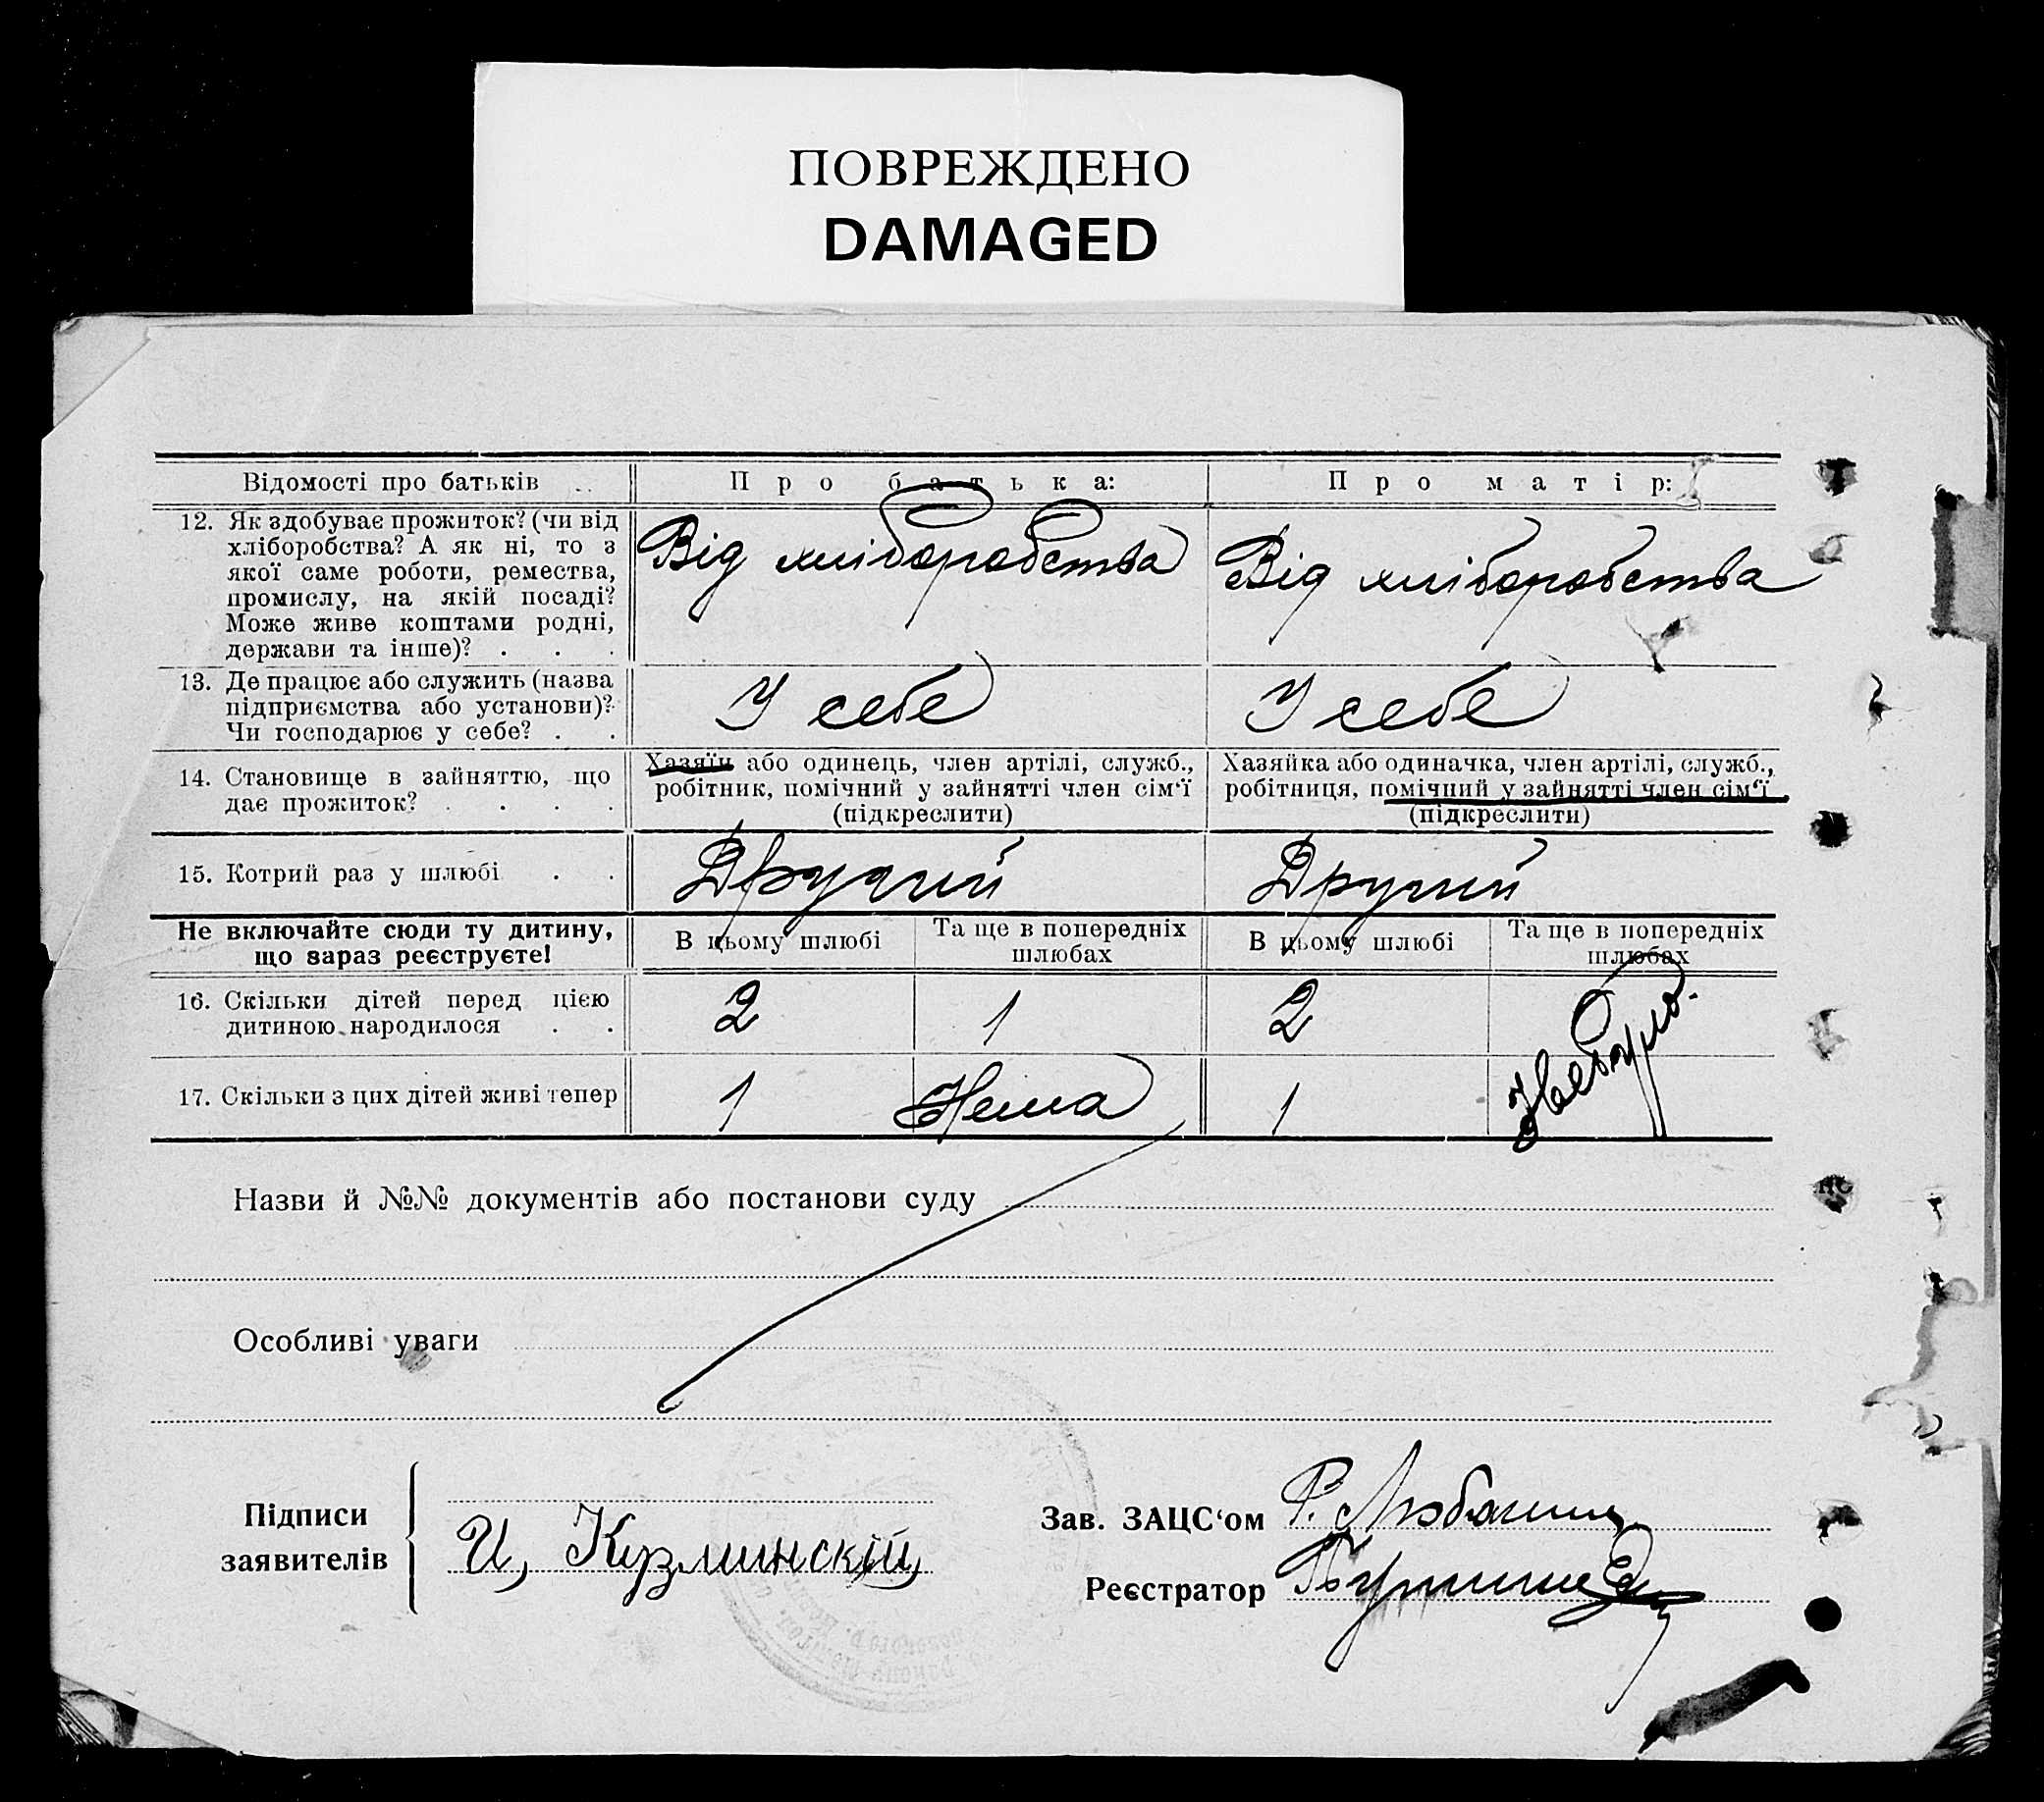 ПОВРЕЖДЕНО
DAMAGED
Відомості про батьків . . Про батька: Про матір:
12. Як здобуває прожиток? (чи від
хліборобства? А як ні, то з
якої саме роботи, ремества,
промислу, на якій посаді?
Може живе коштами родні,
держави та інше)? . . .
Від хліборобства
Від хліборобства
13. Де працює або служить (назва
підприємства або установи)?
Чи господарює у себе? . .
У себе
У себе
14. Становище в зайняттю, що
дає прожиток? . . . .
Хазяїн або одинець, член артілі, служб.,
робітник, помічний у зайнятті член сім‘ї
(підкреслити)
Хазяйка або одиначка, член артілі, служб.,
робітниця, помічний у зайнятті член сім‘ї
(підкреслити)
15. Котрий раз у шлюбі . . Другий Другий
Не включайте сюди ту дитину,
що зараз реєструєте!
В цьому шлюбі
Та ще в попередніх
шлюбах
В цьому шлюбі
Та ще в попередніх
шлюбах
16. Скільки дітей перед цією
дитиною народилося . .
2 1 2
Небуло.
17. Скільки з цих дітей живі тепер 1 Нема 1
Назви й №№ документів або постанови суду
Особливі уваги
Підписи
заявителів
И, Кузминскій
Зав. ЗАЦС‘ом
Реєстратор